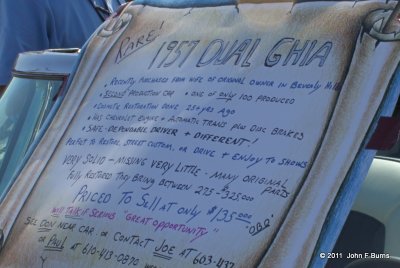 RARE!
1957 DUAL GHIA
• RECENTLY PURCHASED FROM WIFE OF ORIGINAL OWNER IN BEVERLY HILLS
• SECOND PRODUCTION CAR • ONE OF ONLY 100 PRODUCED
• COSMETIC RESTORATION DONE 25+ YRS AGO
• HAS CHEVROLET ENGINE + AUTOMATIC TRANS PLUS DISC BRAKES
• SAFE - DEPENDABLE DRIVER + DIFFERENT!
PERFECT TO RESTORE, STREET CUSTOM, OR DRIVE + ENJOY TO SHOWS
VERY SOLID - MISSING VERY LITTLE - MANY ORIGINAL PARTS
FULLY RESTORED THEY BRING BETWEEN 275-$325000
PRICED TO SELL AT ONLY $135,000 OBO
WILL TALK IF SERIOUS "GREAT OPPORTUNITY"
SEE DON NEAR CAR OR CONTACT JOE AT 603-433
OR PAUL AT 610-413-0870 IN
© 2011 John F Burns